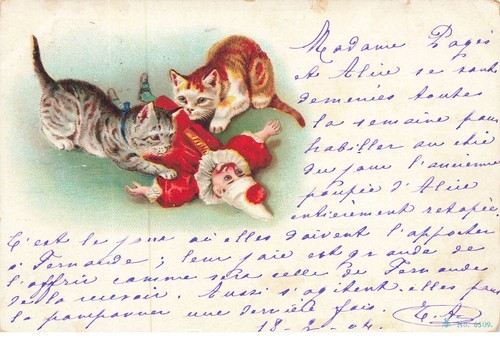 Madame Pagès
et Alice se sont
demenées toutes
la semaine pour
habiller au chic
du jour l'ancienne
poupée d'Alice
entièrement retapée
C'est le jour où elles doivent l'apporter
à Fernande ; leur joie est grande de
l'offrir comme sera celle de Fernande
de la recevoir. Aussi s'agitent-elles pour
la pomponner une dernière fois.
18-2-04.
No. 6509.